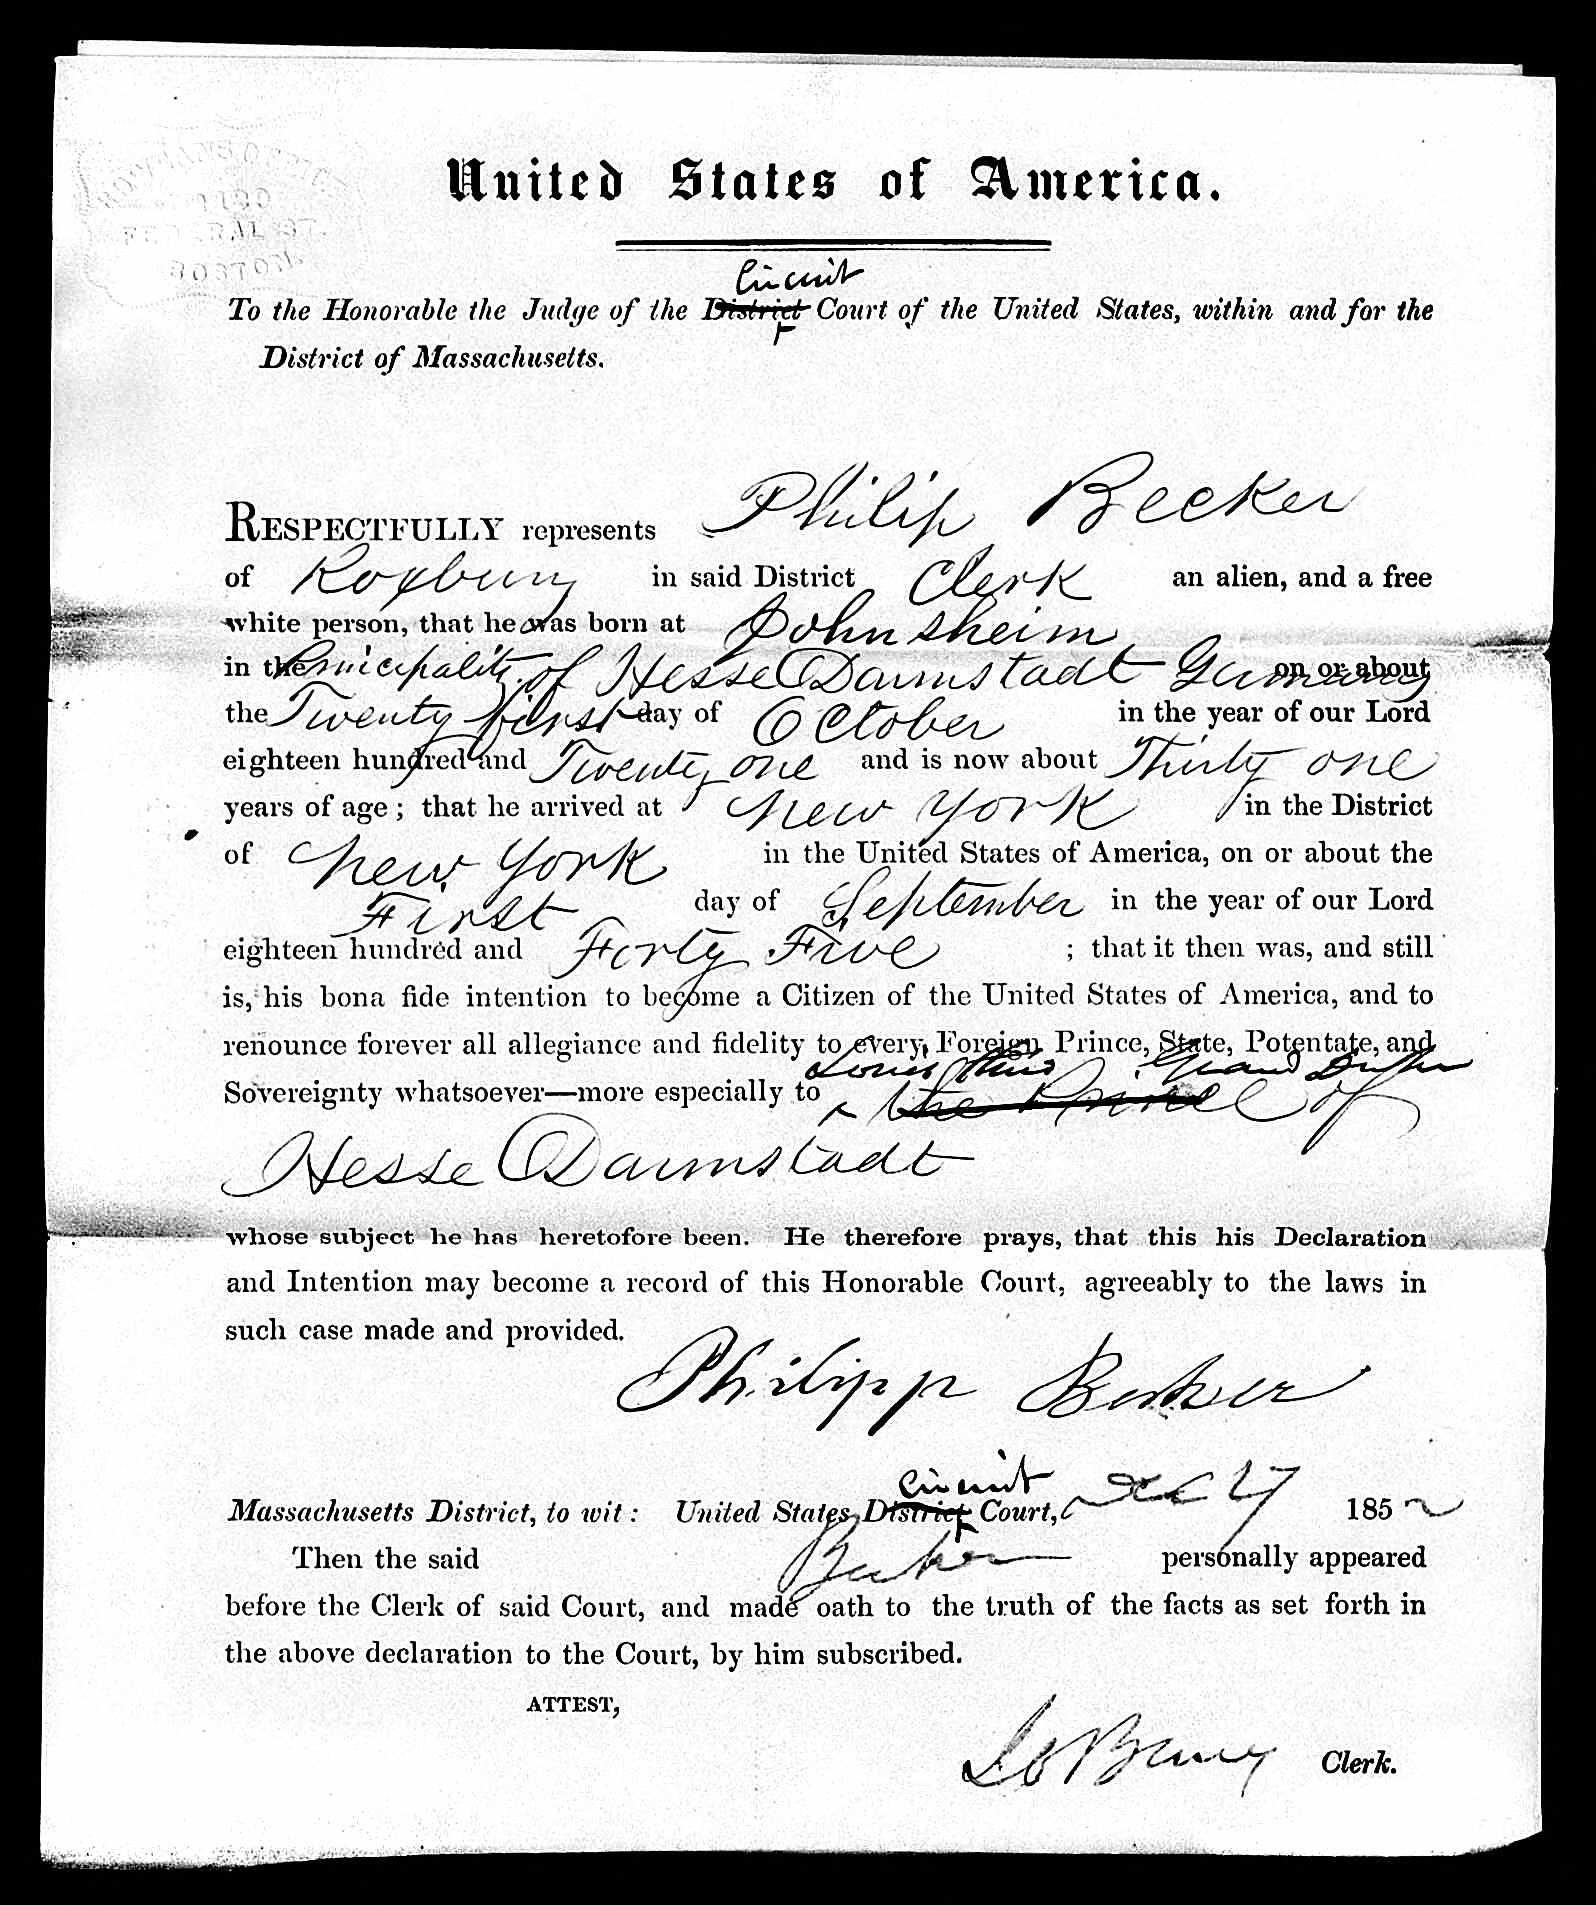 1130
FEDERAL ST.
BOSTON.
United States of America.
Circuit
To the Honorable the Judge of the District Court of the United States, within and for the
District of Massachusetts.
RESPECTFULLY represents Philip Becker
of Roxbury in said District Clerk an alien, and a free
white person, that he was born at Johnsheim
in the Principality of Hesse Darmstadt Germany on or about
the Twenty first day of October in the year of our Lord
eighteen hundred and Twenty one and is now about Thirty one
years of age; that he arrived at New York in the District
of New York in the United States of America, on or about the
First day of September in the year of our Lord
eighteen hundred and Forty Five ; that it then was, and still
is, his bona fide intention to become a Citizen of the United States of America, and to
renounce forever all allegiance and fidelity to every Foreign Prince, State, Potentate, and
Louis Grand Duke
Sovereignty whatsoever—more especially to the Prince of
Hesse Darmstadt
whose subject he has heretofore been. He therefore prays, that this his Declaration
and Intention may become a record of this Honorable Court, agreeably to the laws in
such case made and provided.
Philipp Becker
Circuit
Massachusetts District, to wit: United States District Court, Dec 27 1852
Then the said Becker personally appeared
before the Clerk of said Court, and made oath to the truth of the facts as set forth in
the above declaration to the Court, by him subscribed.
ATTEST,
Clerk.